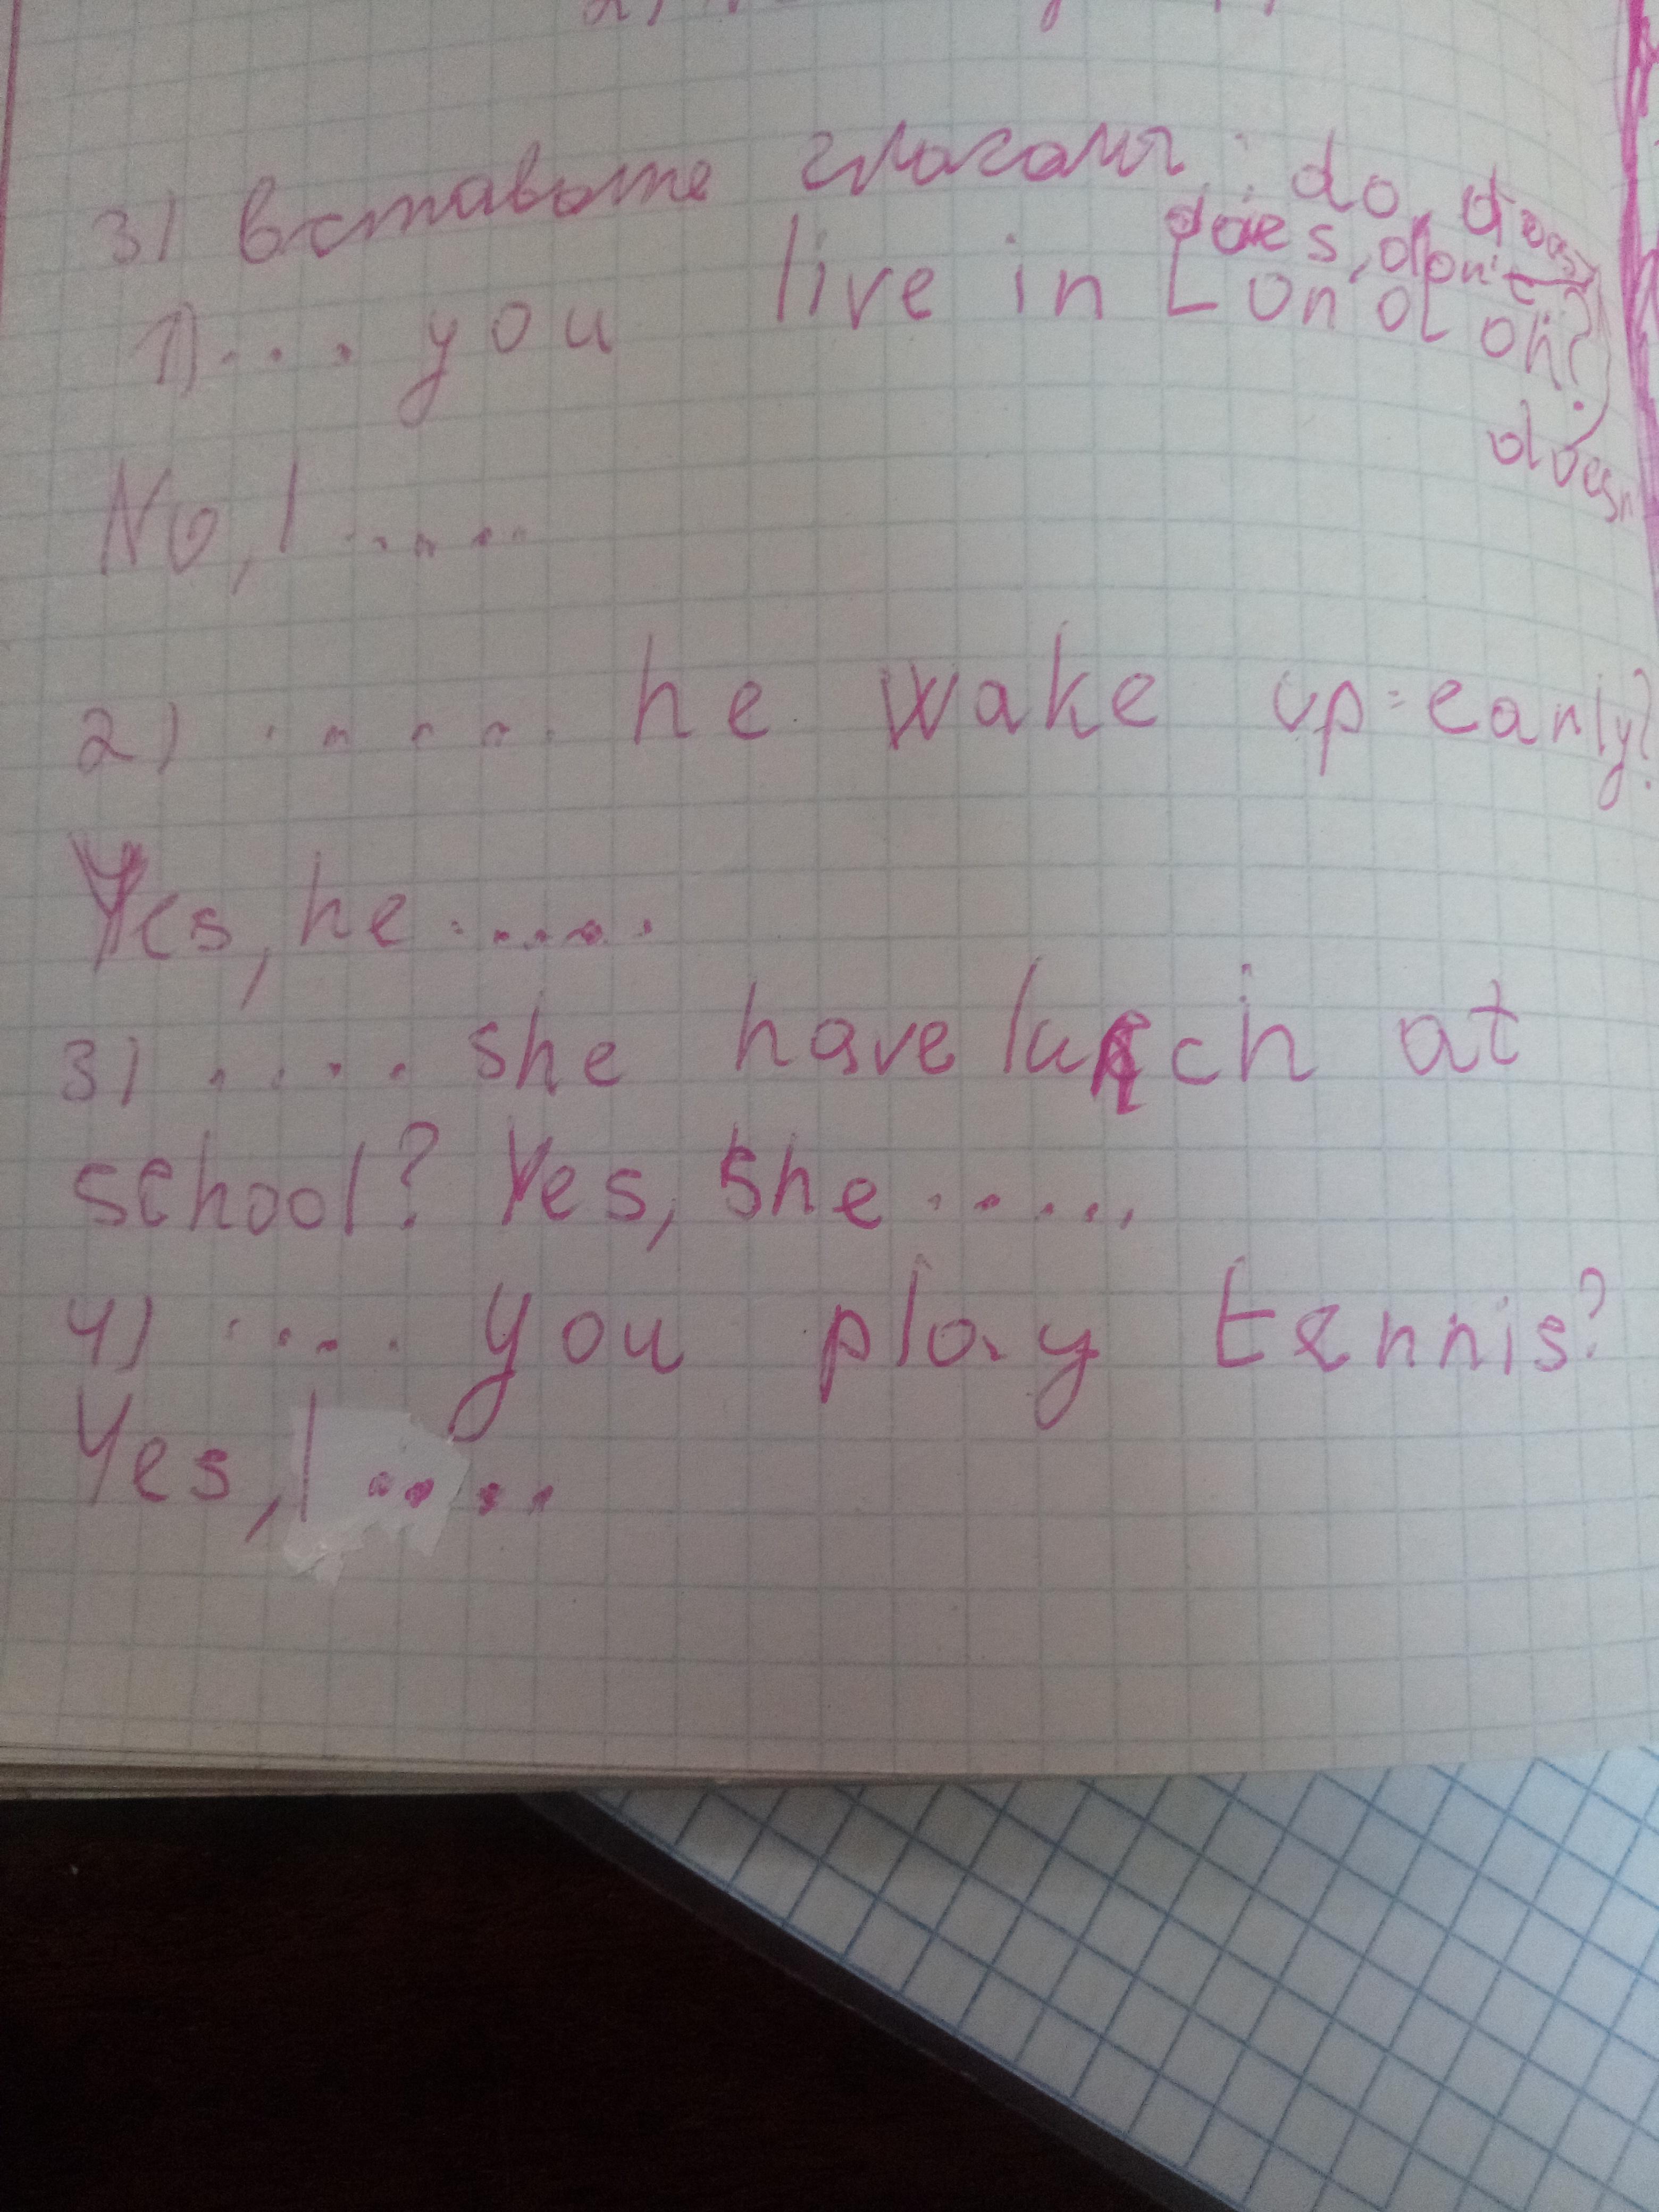 3) вставьте глаголы: do, does, don't
doesn
1) .... you live in London?
No, I .....
2) ..... he wake up early?
Yes, he .....
3) .... she have lunch at
school? Yes, she .....
4) .... you play tennis?
Yes, I ....